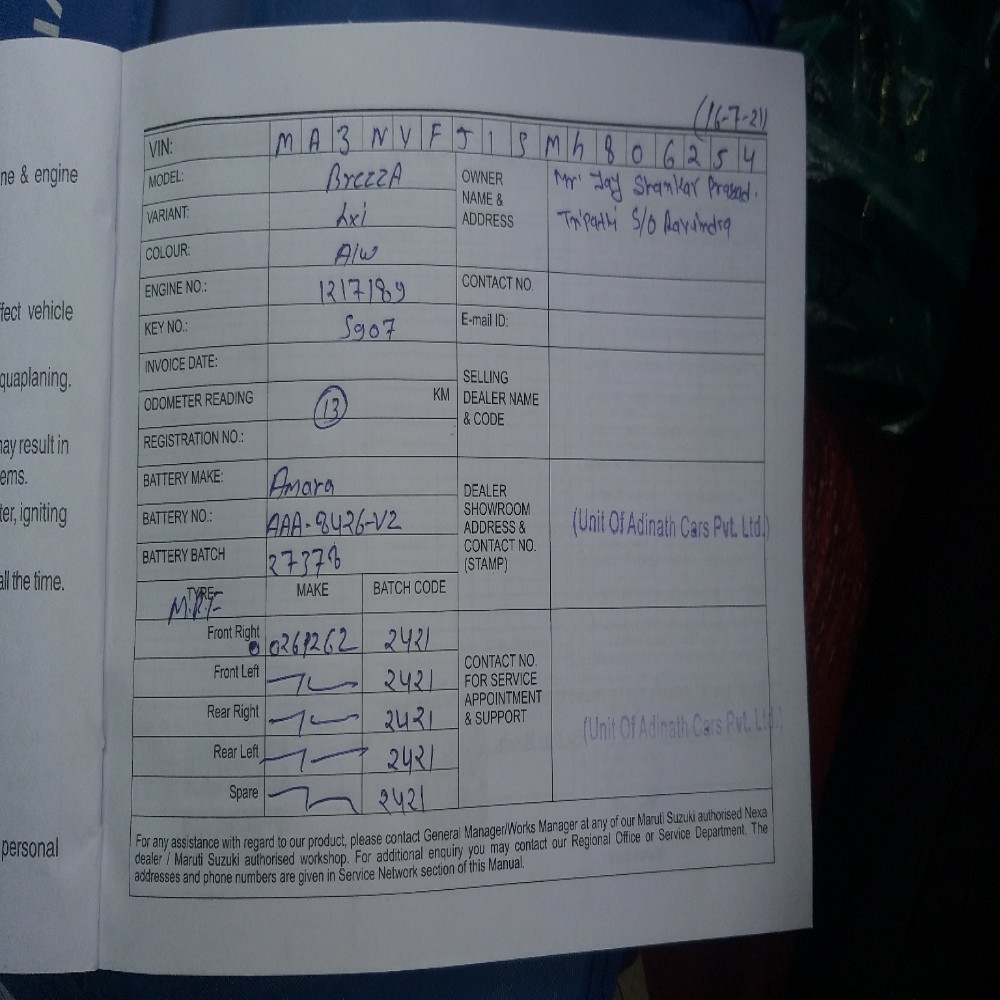 ne & engine
fect vehicle
quaplaning.
nay result in
ems.
ter, igniting
all the time.
personal
(16-7-21)
VIN: MA3NYFJISMh806254
MODEL: BrezzA
VARIANT: Lxi
COLOUR: A/w
ENGINE NO.: 1217189
KEY NO.: 5907
INVOICE DATE:
ODOMETER READING 13 KM
REGISTRATION NO.:
BATTERY MAKE: Amara
BATTERY NO.: AAA-8426-V2
BATTERY BATCH 27378
TYRE MAKE BATCH CODE
M.R.F
Front Right 0261262 2421
Front Left 2421
Rear Right 2421
Rear Left 2421
Spare 2421
OWNER NAME & ADDRESS
Mr. Jay Shankar Prasad.
Tripathi S/O Ravindra
CONTACT NO.
E-mail ID:
SELLING
DEALER NAME
& CODE
DEALER
SHOWROOM
ADDRESS &
CONTACT NO.
(STAMP)
(Unit Of Adinath Cars Pvt. Ltd.)
CONTACT NO.
FOR SERVICE
APPOINTMENT
& SUPPORT
(Unit Of Adinath Cars Pvt. Ltd.)
For any assistance with regard to our product, please contact General Manager/Works Manager at any of our Maruti Suzuki authorised Nexa
dealer / Maruti Suzuki authorised workshop. For additional enquiry you may contact our Regional Office or Service Department. The
addresses and phone numbers are given in Service Network section of this Manual.